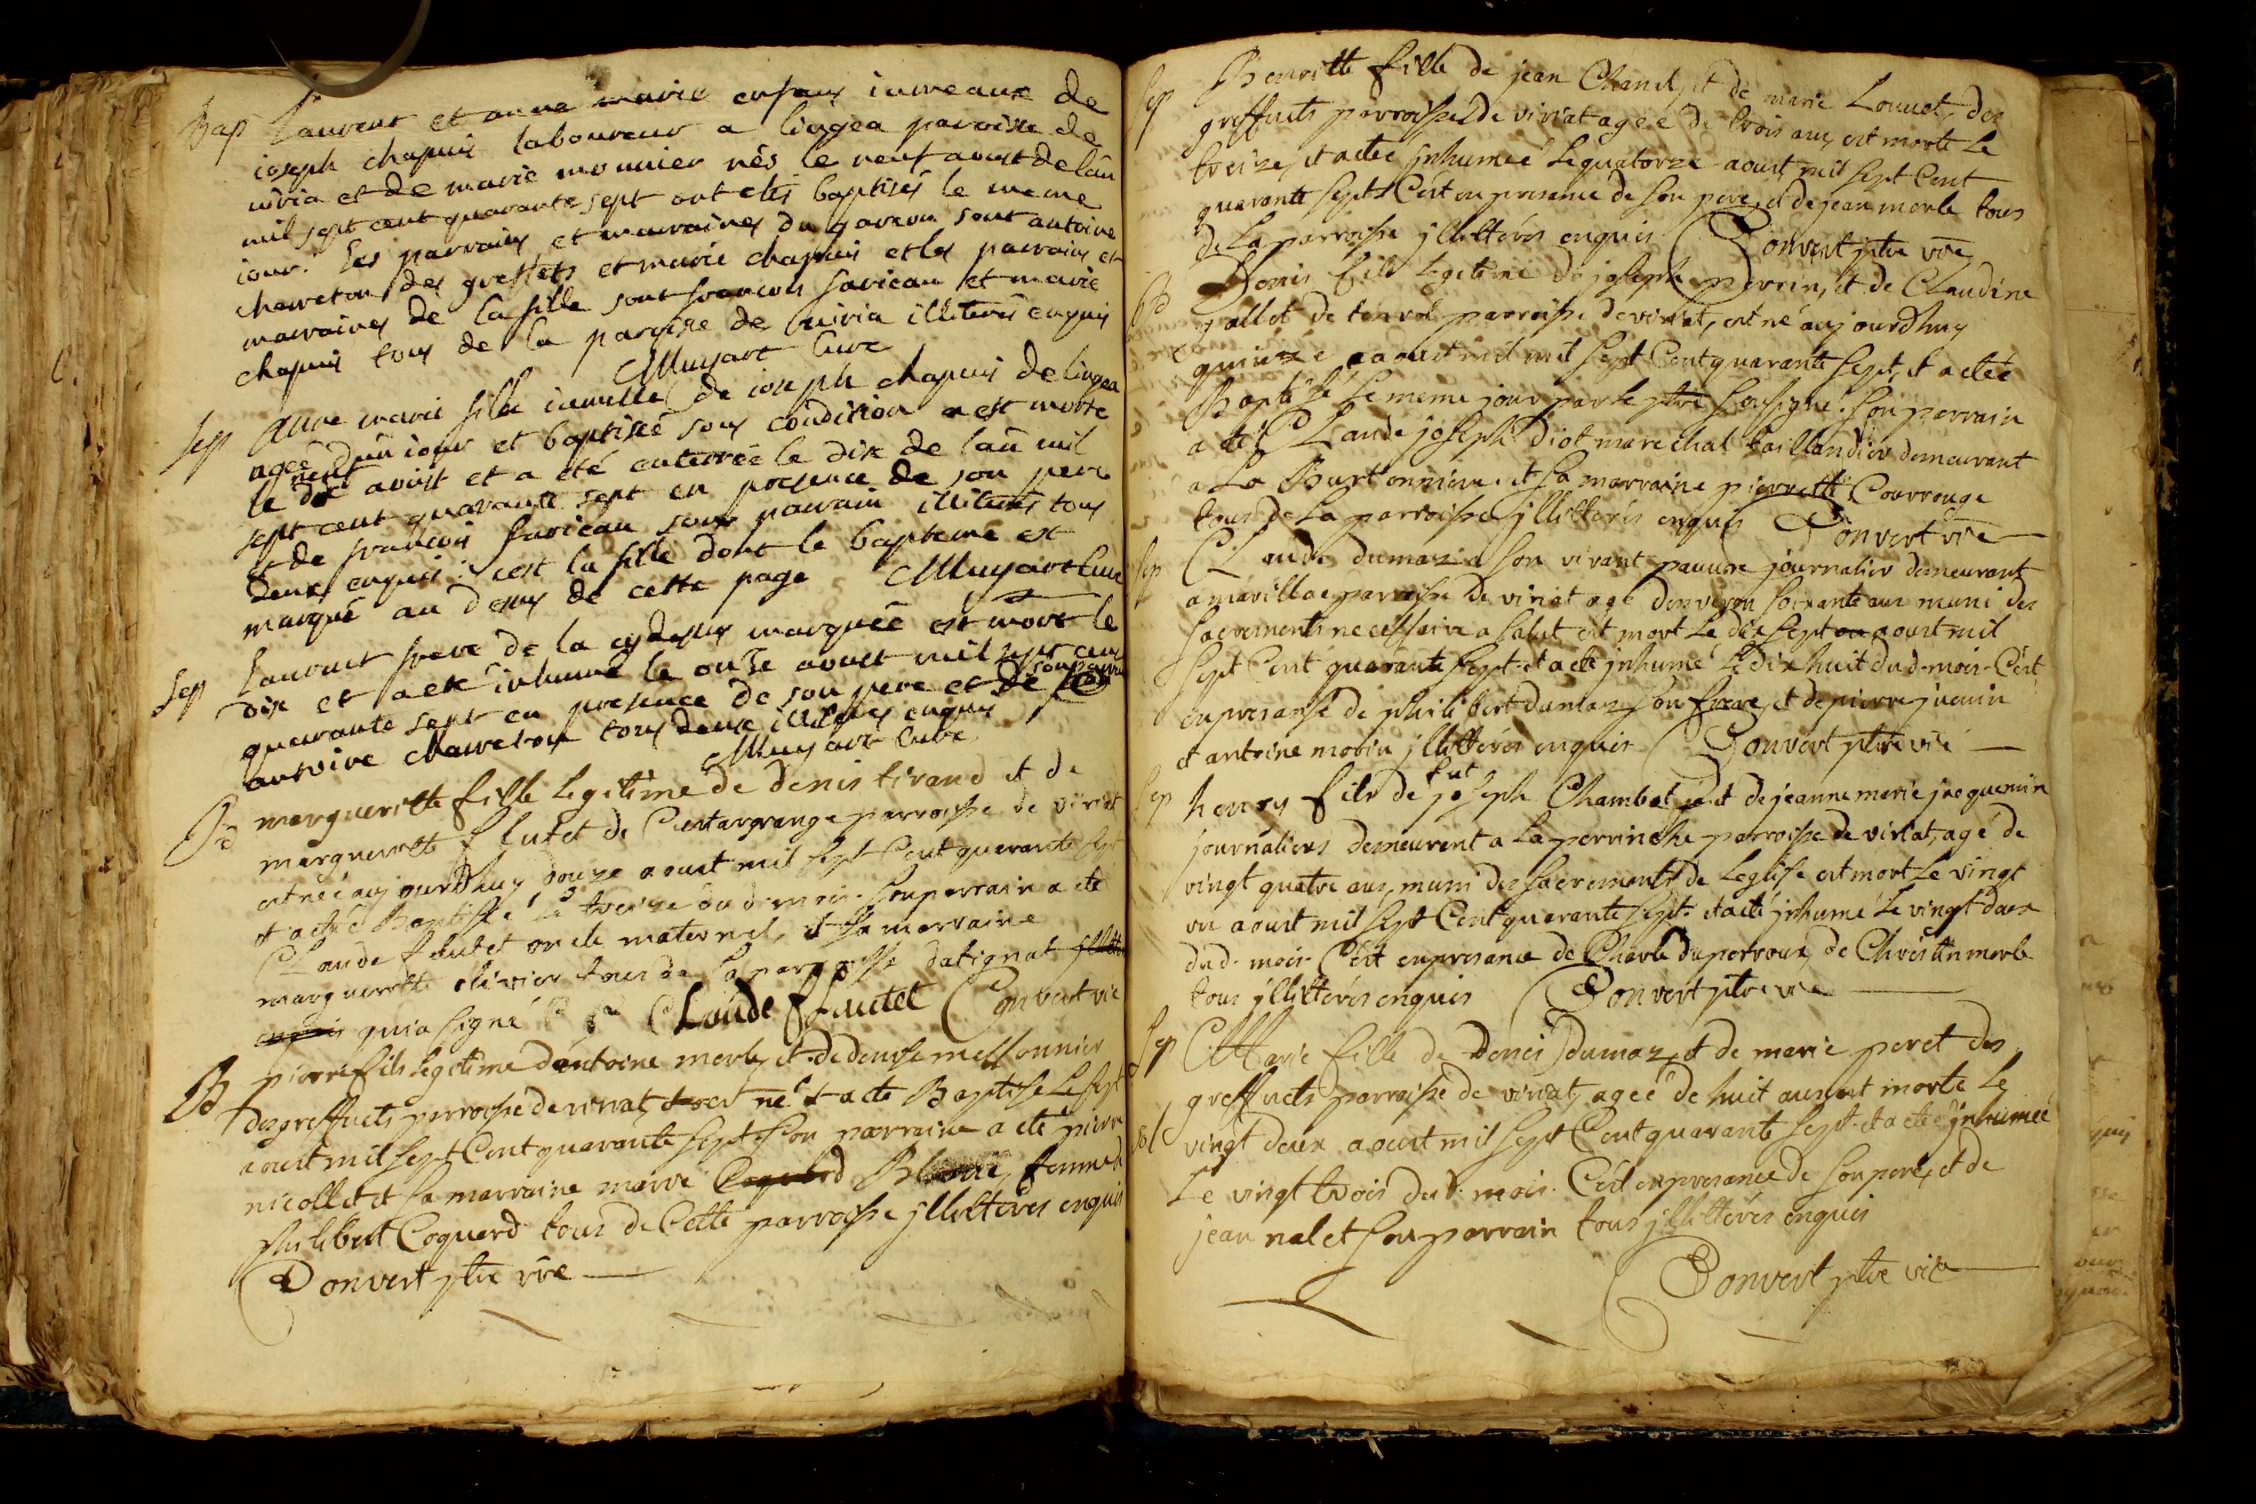 Bap Laurent et anne marie enfans iumeaux de
ioseph chapuis laboureur a lingea paroisse de
viria et de marie monnier nés le neuf aoust de lan
mil sept cent quarante sept ont etés baptisés le meme
iour. les parrains et marraines du garcon sont antoine
chaureton des greffets et marie chapuis et les parrains et
marraines de la fille sont francois favieau et marie
chapuis tous de la paroisse de viria illiterés enquis
Muyart curé
Sep Anne marie fille iumelle de ioseph chapuis de lingea
agée d'un iour et baptisée sous condition est morte
le neuf aoust et a été enterrée le dix de l'an mil
sept cent quarante sept en presence de son pere
et de francois favieau son parrain illiterés tous
deux enquis. cest la fille dont le bapteme est
marqué au dessus de cette page Muyart curé
Sep Laurent frere de la cy dessus marquée est mort le
dix et a eté inhumé le onze aoust mil sept cent
quarante sept en presence de son pere et de son parrain
antoine chaureton tous deux illiterés enquis
Muyart curé
B margueritte fille Legitime de denis tirand et de
margueritte fflutet de Cuetargrange parroisse de viriat
est née aujourdhuy douze aoust mil sept Cent quarante sept
et a eté Baptisé la treize du d. mois. Son parrain a eté
Claude flutet oncle maternel, et sa marraine
marguerette olivier tous de la parroisse datignat
enquis qui a signé Claude fflutet Convert vie
B pierre fils legitime dantoine merle et de denise messonnier
des greffuets parroisse de viriat, est né et a eté Baptisé Le sept
aoust mil sept Cent quarante sept. Son parrain a eté pierre
nicollet et sa marraine marie Coquard femme a
philibert Coquard tous de Cette parroisse jllitterés enquis
Convert ptre vie
Sep Benoitte fille de jean Chanel, et de marie Louuet, des
greffuets parroisse de viriat agée de trois ans, est morte Le
treize, et a eté jnhumeé Le quatorze aoust mil sept Cent
quarante sept. C'est en presance de son pere, et de jean merle tous
de La parroisse jllitterés enquis Convert ptre vie
B Denis fils Legitime de joseph perrin, et de Claudine
jallet de tervol parroisse de viriat, est né aujourdhuy
quinze aoust mil mil sept Cent quarante sept, et a eté
Baptisé Le meme jour par le ptre soussigné. Son parrain
a eté Claude joseph diot marechal taillandier demeurant
a La Burtonniere. et sa marraine pierrette Courrouge
tous de La parroisse jllitterés enquis Convert vie
Sep Claude dumaz a son vivant pauure journalier demeurant
a marillac parroisse de viriat agé denviron soixante ans muni des
sacrements necessaire a salut est mort Le dix sept aoust mil
sept Cent quarante sept. et a eté jnhumé Le dix huit dud. mois. C'est
en presanse de philibert dumaz son frere, et de pierre juenin
et antoine morin jllitterés enquis Convert ptre vie
Sep henry fils de fut joseph Chambet, et de jeanne marie jacquemin
journaliers demeurent a La perrinche parroisse de viriat, agé de
vingt quatre ans, muni des sacrements de Leglise est mort Le vingt
un aoust mil sept Cent quarante sept. et a eté jnhumé Le vingt deux
dud. mois. C'est en presance de Charle duperroux, de Christin merle
tous jllitterés enquis Convert ptre vie
Sep Marie fille de denis dumaz, et de marie peret des
greffuets parroisse de viriat, agée de huit ans est morte Le
vingt deux aoust mil sept Cent quarante sept. et a eté jnhumeé
Le vingt trois dud. mois. C'est en presance de son pere, et de
jean nalet son parrain tous jllitterés enquis
Convert ptre vie